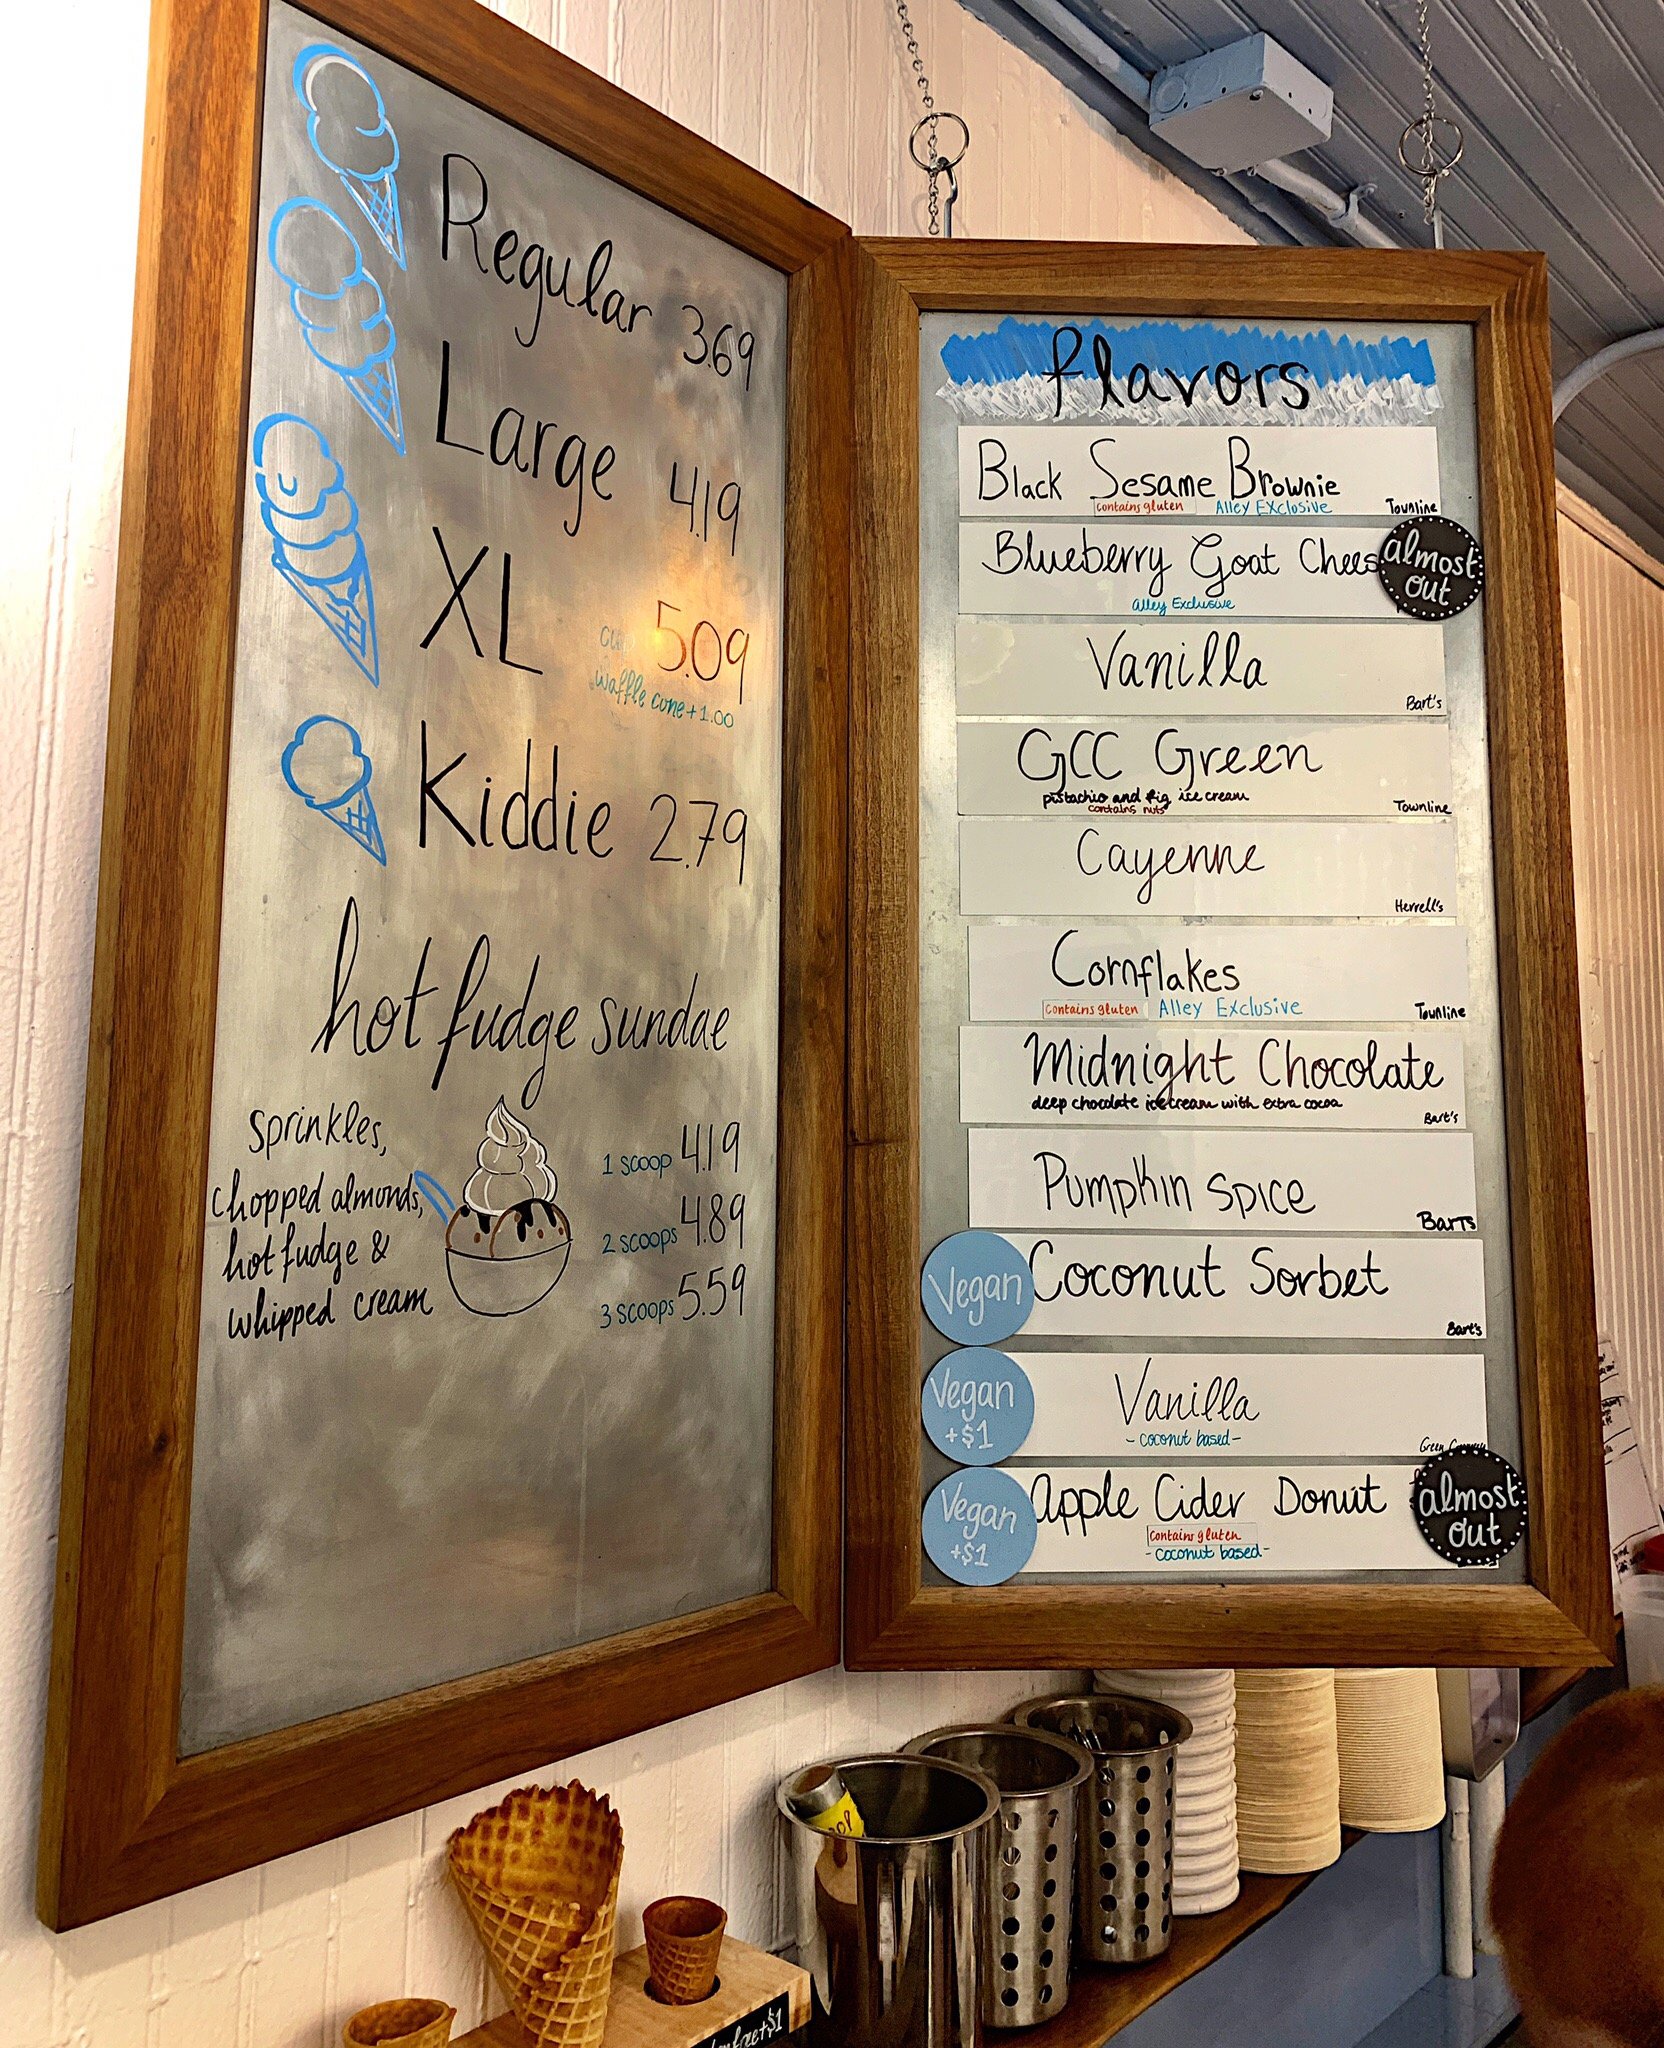 Regular 3.69
Large 4.19
XL 5.09
waffle cone + 1.00
Kiddie 2.79
hot fudge sundae
sprinkles,
chopped almonds,
hot fudge &
whipped cream
1 scoop 4.19
2 scoops 4.89
3 scoops 5.59
flavors
Black Sesame Brownie
contains gluten Alley Exclusive Townline
Blueberry Goat Chees
almost out
Alley Exclusive
Vanilla
Bart's
GCC Green
pistachio and fig ice cream
contains nuts
Townline
Cayenne
Herrell's
Cornflakes
contains gluten Alley Exclusive Townline
Midnight Chocolate
deep chocolate ice cream with extra cocoa
Bart's
Pumpkin Spice
Barts
Vegan
Coconut Sorbet
Bart's
Vegan
+$1
Vanilla
- coconut based -
Green
Vegan
+$1
Apple Cider Donut
almost out
contains gluten
- coconut based -